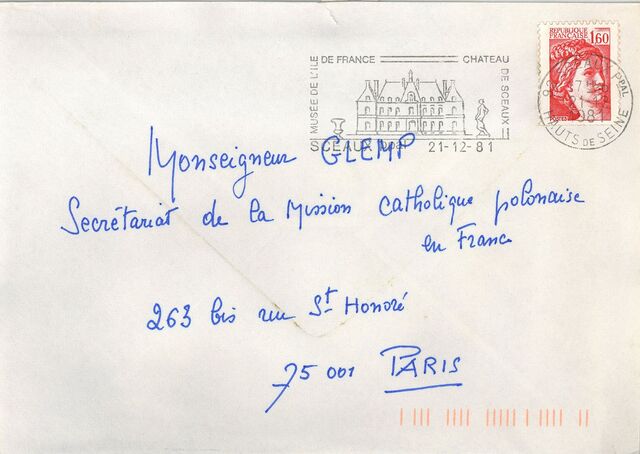 MUSÉE DE L'ILE DE FRANCE CHATEAU DE SCEAUX
SCEAUX Ppal 21-12-81
REPUBLIQUE FRANÇAISE 1,60
HAUTS DE SEINE
Monseigneur GLEMP
Secrétariat de la Mission Catholique polonaise
en France
263 bis rue St Honoré
75 001 PARIS